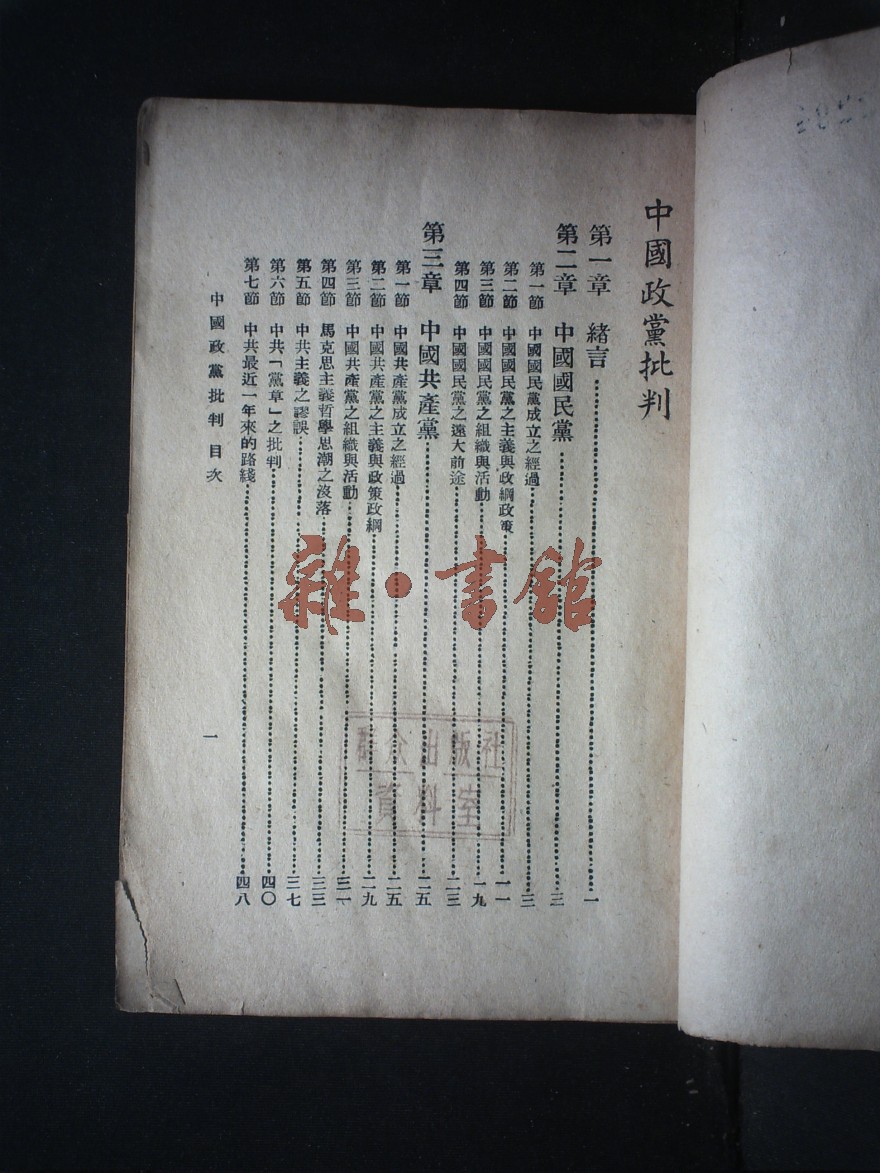 中國政黨批判
第一章 緒言……一
第二章 中國國民黨……三
第一節 中國國民黨成立之經過……三
第二節 中國國民黨之主義與政綱政策……一一
第三節 中國國民黨之組織與活動……一九
第四節 中國國民黨之遠大前途……二三
第三章 中國共產黨……二五
第一節 中國共產黨成立之經過……二五
第二節 中國共產黨之主義與政策政綱……二九
第三節 中國共產黨之組織與活動……三一
第四節 馬克思主義哲學思潮之沒落……三三
第五節 中共主義之謬誤……三七
第六節 中共「黨章」之批判……四〇
第七節 中共最近一年來的路綫……四八
中國政黨批判目次
一
雜·書館
群众出版社
資料室